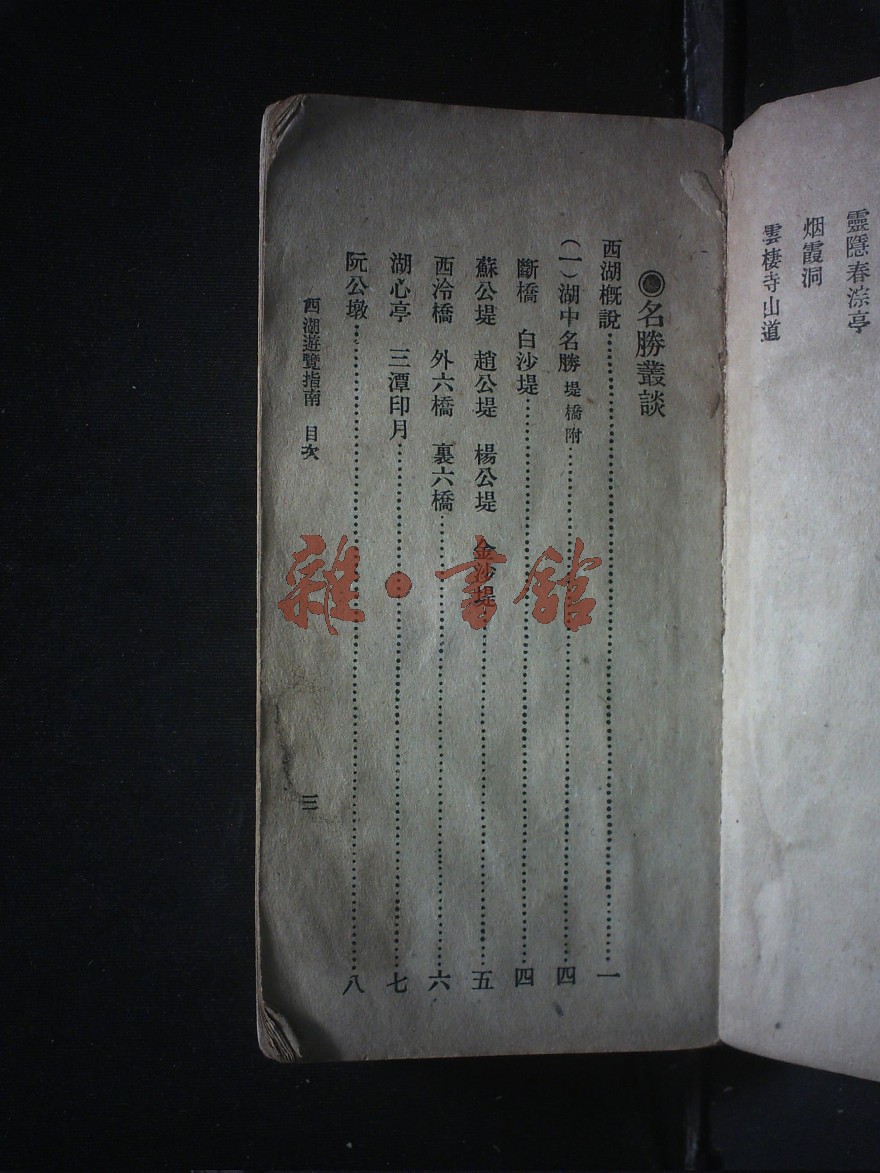 靈隱春淙亭
烟霞洞
雲棲寺山道
◉名勝叢談
西湖概說……一
(一)湖中名勝 堤橋附……四
斷橋 白沙堤……四
蘇公堤 趙公堤 楊公堤 金沙堤……五
西泠橋 外六橋 裏六橋……六
湖心亭 三潭印月……七
阮公墩……八
西湖遊覽指南 目次 三
雜·書館